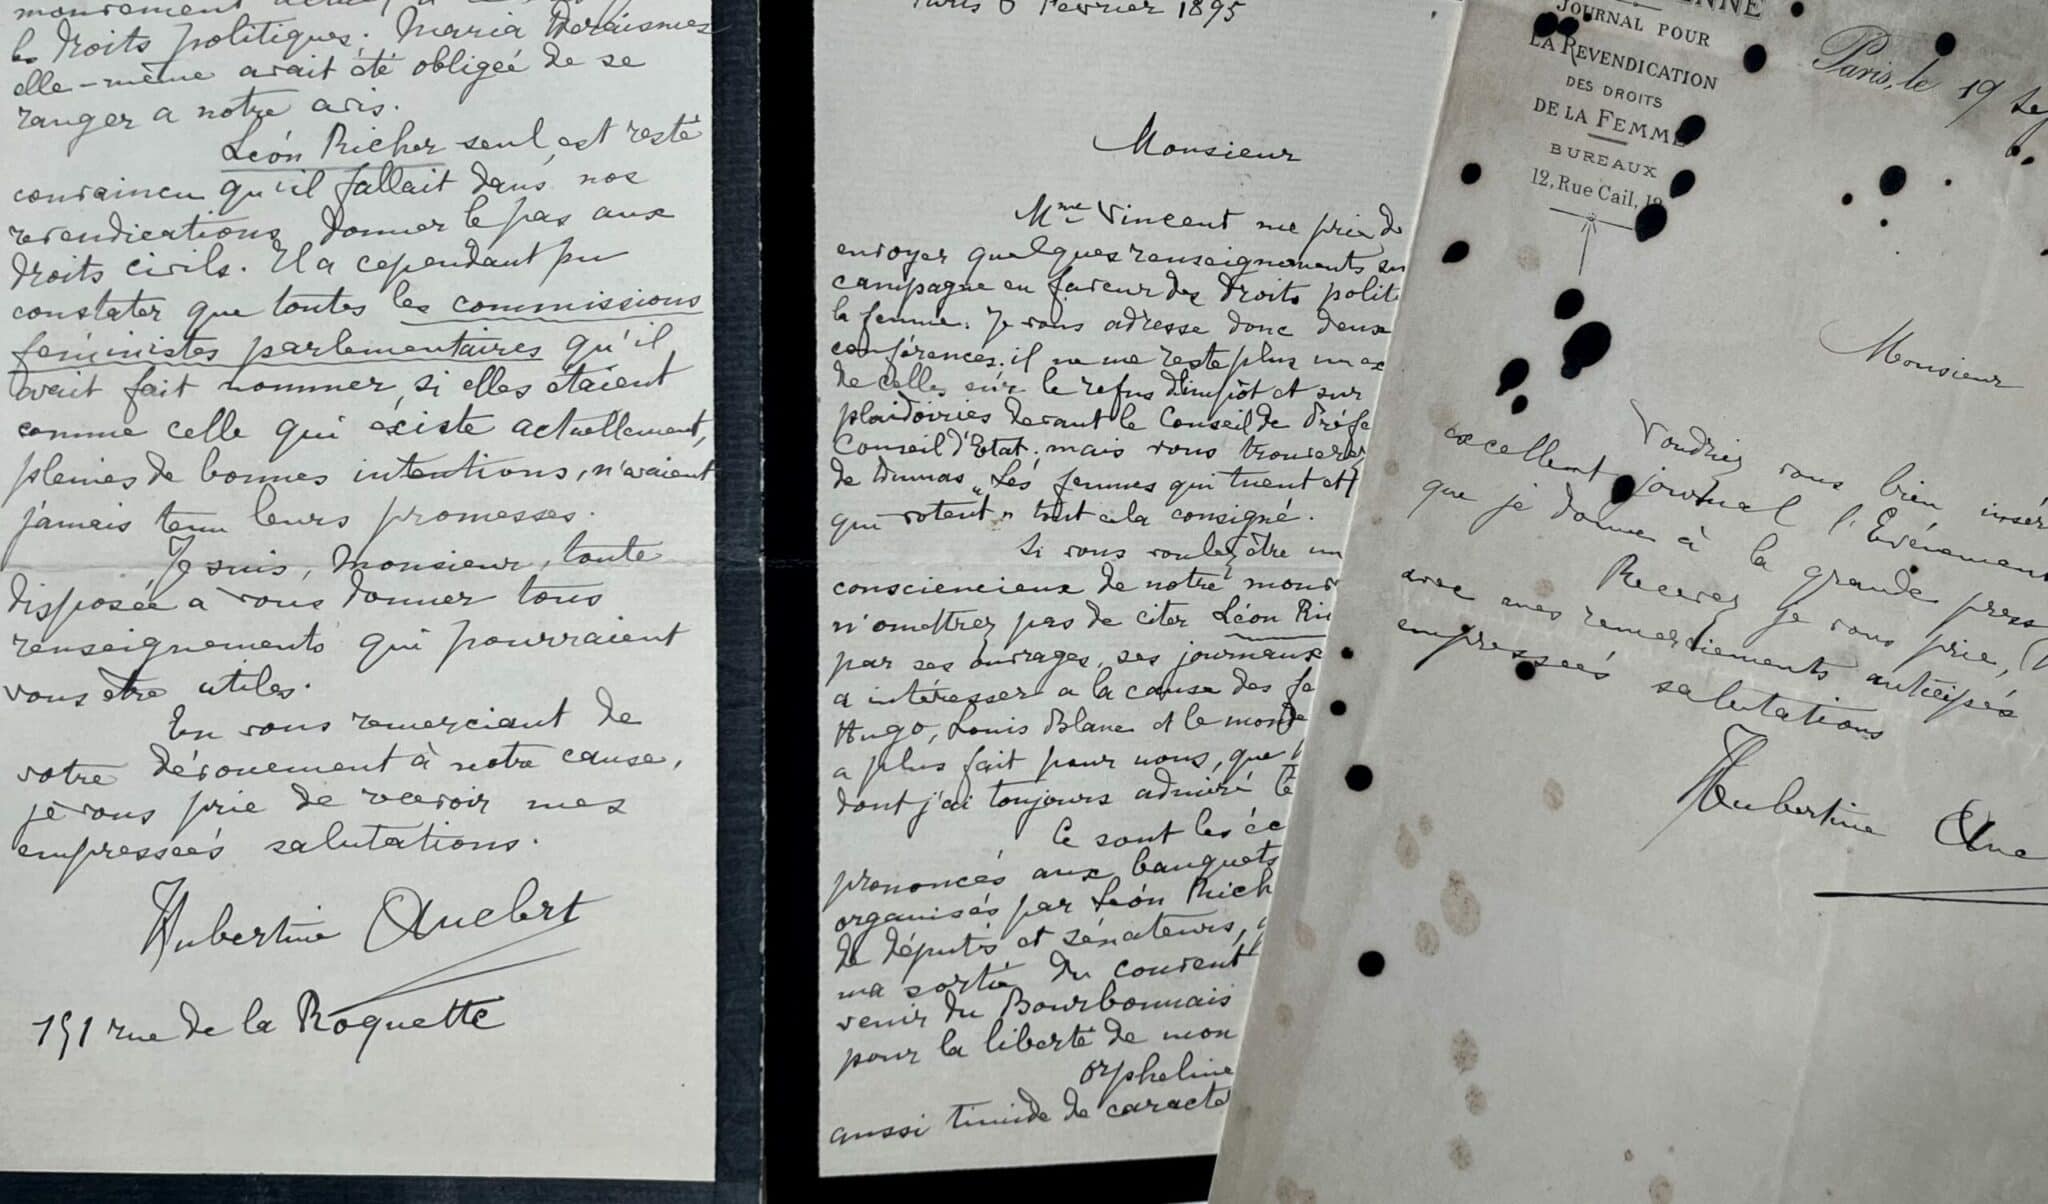 mouvement
les droits politiques. Maria Deraismes
elle-même avait été obligée de se
ranger a notre avis.
Léon Richer seul, est resté
convaincu qu'il fallait dans nos
revendications donner le pas aux
droits civils. Il a cependant pu
constater que toutes les commissions
féministes parlementaires qu'il
avait fait nommer, si elles étaient
comme celle qui éxiste actuellement,
pleines de bonnes intentions, n'avaient
jamais tenu leurs promesses.
Je suis, Monsieur, toute
disposée a vous donner tous
renseignements qui pourraient
vous être utiles.
En vous remerciant de
votre dévouement à notre cause,
je vous prie de recevoir mes
empresseés salutations.
Hubertine Auclert
151 rue de la Roquette
Paris 6 Février 1895
Monsieur
Mme Vincent me prie de
envoyer quelques renseignements sur
campagne en faveur des droits polit
la femme. Je vous adresse donc deux
conférences. il ne me reste plus un ex
de celles sur le refus d'impôt et sur
plaidoiries devant le Conseil de Préfe
Conseil d'Etat. mais vous trouverez
de Dumas "Les femmes qui tuent et
qui votent" tout cela consigné.
Si vous voulez être un
consciencieux de notre mouv
n'omettrez pas de citer Léon Ri
par ses ouvrages, ses journaux
a intéresser a la cause des fe
Hugo, Louis Blanc et le monde
a plus fait pour nous, que
dont j'ai toujours admiré le
Ce sont les éc
prononcés aux banquets
organisés par Léon Rich
de députés et sénateurs,
ma sortie du couvent
venir du Bourbonnais
pour la liberté de mon
orpheline
aussi timide de caractè
ENNE
JOURNAL POUR
LA REVENDICATION
DES DROITS
DE LA FEMME
BUREAUX
12, Rue Cail, 12
Paris, le 19 Se
Monsieur
Voudriez vous bien insér
excellent journal l'Evénement
que je donne à la grande press
Recevez je vous prie, M
avec mes remerciements anticipés
empresseés salutations
Hubertine Auc